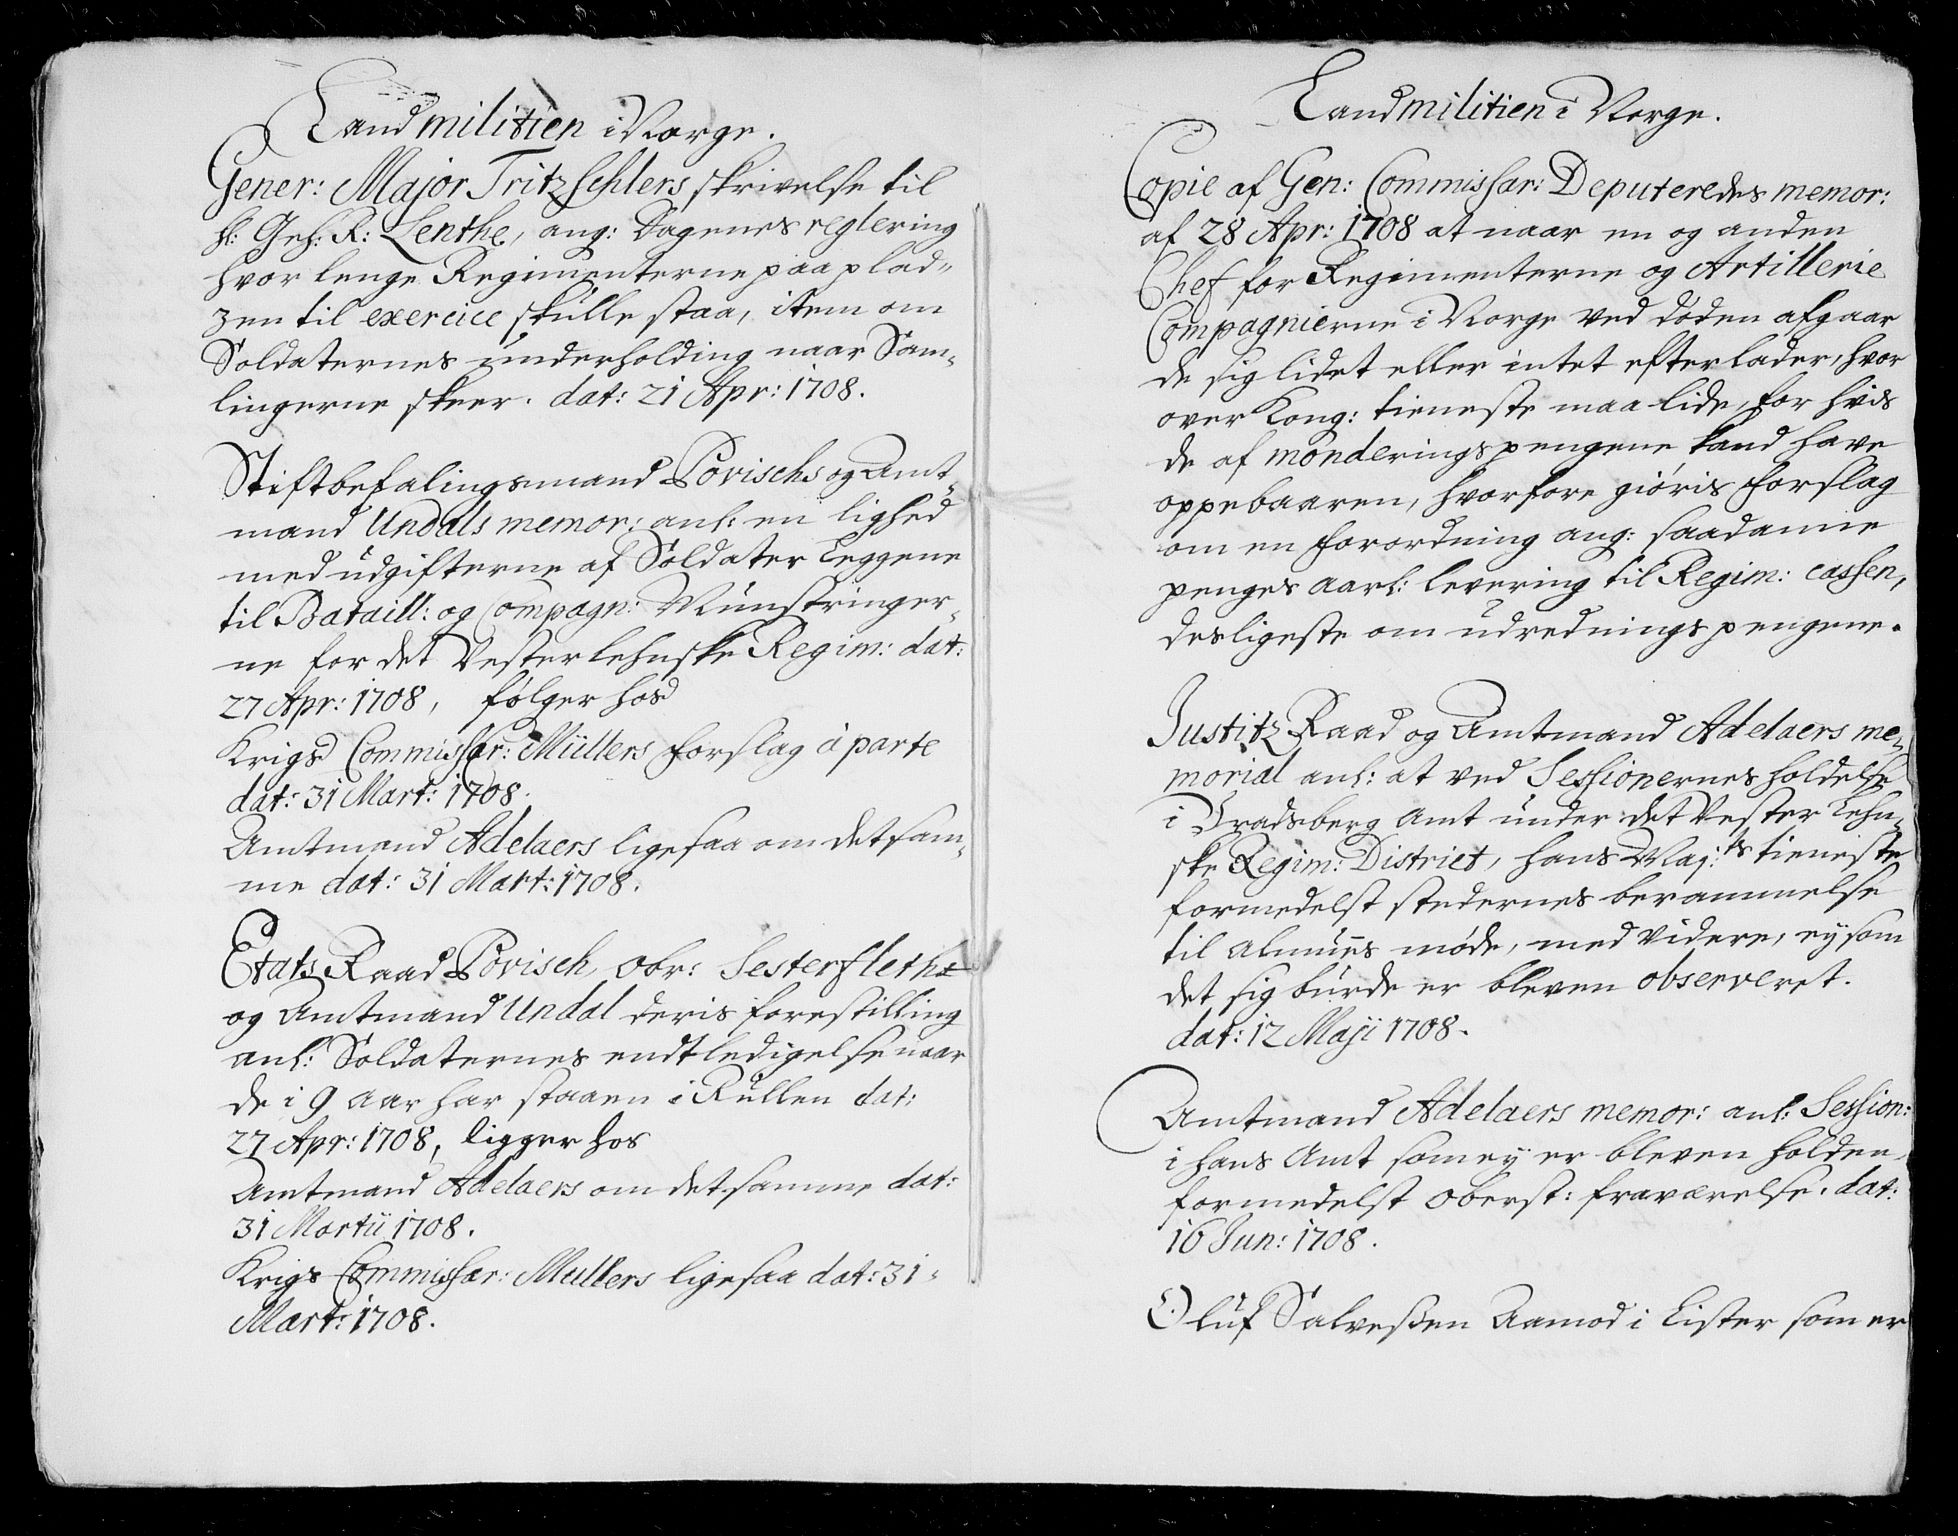 Landmilitien i Norge.
Gener: Major Tritzschlers skrivelse til
H: Geh: R: Lenthe, ang: Dagenes reglering
hvor lenge Regimenterne paa plad-
zen til exercice skulle staa, item om
Soldaternes underholding naar Sam-
lingerne skeer. dat: 21 Apr: 1708.
Stiftbefalingsmand Povischs og Amt-
mand Undals memor: anl: en lighed
med udgifterne af Soldater Leggene
til Bataill: og Compagn: Münstringer-
ne for det Vesterlehnske Regim: dat:
27 Apr: 1708, følger hos
Krigs Commissar: Müllers forslag à parte
dat: 31 Mart: 1708.
Amtmand Adelaers ligesaa om det sam-
me dat: 31 Mart: 1708.
Etats Raad Povisch, Obr: Sesterfleth
og Amtmand Undal deris forestilling
anl: Soldaternes endtledigelse naar
de i 9 aar har staaen i Rullen dat:
27 Apr: 1708, ligger hos
Amtmand Adelaers om det samme dat:
31 Martii 1708.
Krigs Commissar: Mullers ligesaa dat: 31
Mart: 1708.
Landmilitien i Norge.
Copie af Gen: Commissar: Deputeredes memor:
af 28 Apr: 1708 at naar en og anden
Chef for Regimenterne og Artillerie
Compagnierne i Norge ved døden afgaar
de sig lidet eller intet efterlader, hvor
over Kong: tieneste maa lide, for hvis
de af monderings pengene kand have
oppebaaren, hvorfore giöris forslag
om en forordning ang: saadanne
penges aarl: levering til Regim: cassen,
desligeste om udrednings pengene.
Justitz Raad og Amtmand Adelaers me-
morial anl: at ved Sessionernes holdelse
i Bradsberg Amt under det Vester Lehn-
ske Regim: District, hans Maj:ts tieneste
formedelst stedernes berammelse
til almues møde, med videre, ey som
det sig burde er bleven observeret.
dat: 12 Maji 1708.
Amtmand Adelaers memor: anl: Session:
i hans Amt som ey er bleven holden,
formedelst Oberst: fraværelse. dat:
16 Jun: 1708.
Oluf Salveßen Aamod i Lister som er